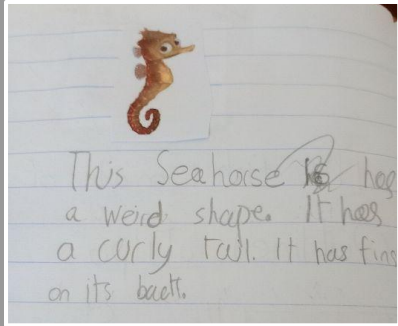 This Seahorse has
a weird shape. It has
a curly tail. It has fins
on its back.